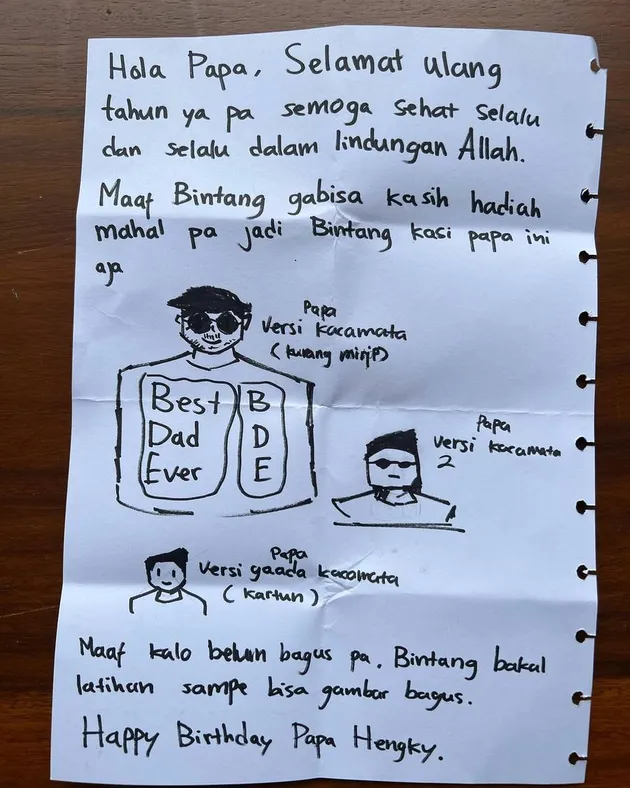 Hola Papa, Selamat ulang
tahun ya pa semoga sehat selalu
dan selalu dalam lindungan Allah.
Maaf Bintang gabisa kasih hadiah
mahal pa jadi Bintang kasi papa ini
aja
Papa
Versi kacamata
(kurang mirip)
Best
Dad
Ever
B
D
E
Papa
Versi kacamata
2
Papa
Versi gaada kacamata
(kartun)
Maaf kalo belum bagus pa. Bintang bakal
latihan sampe bisa gambar bagus.
Happy Birthday Papa Hengky.